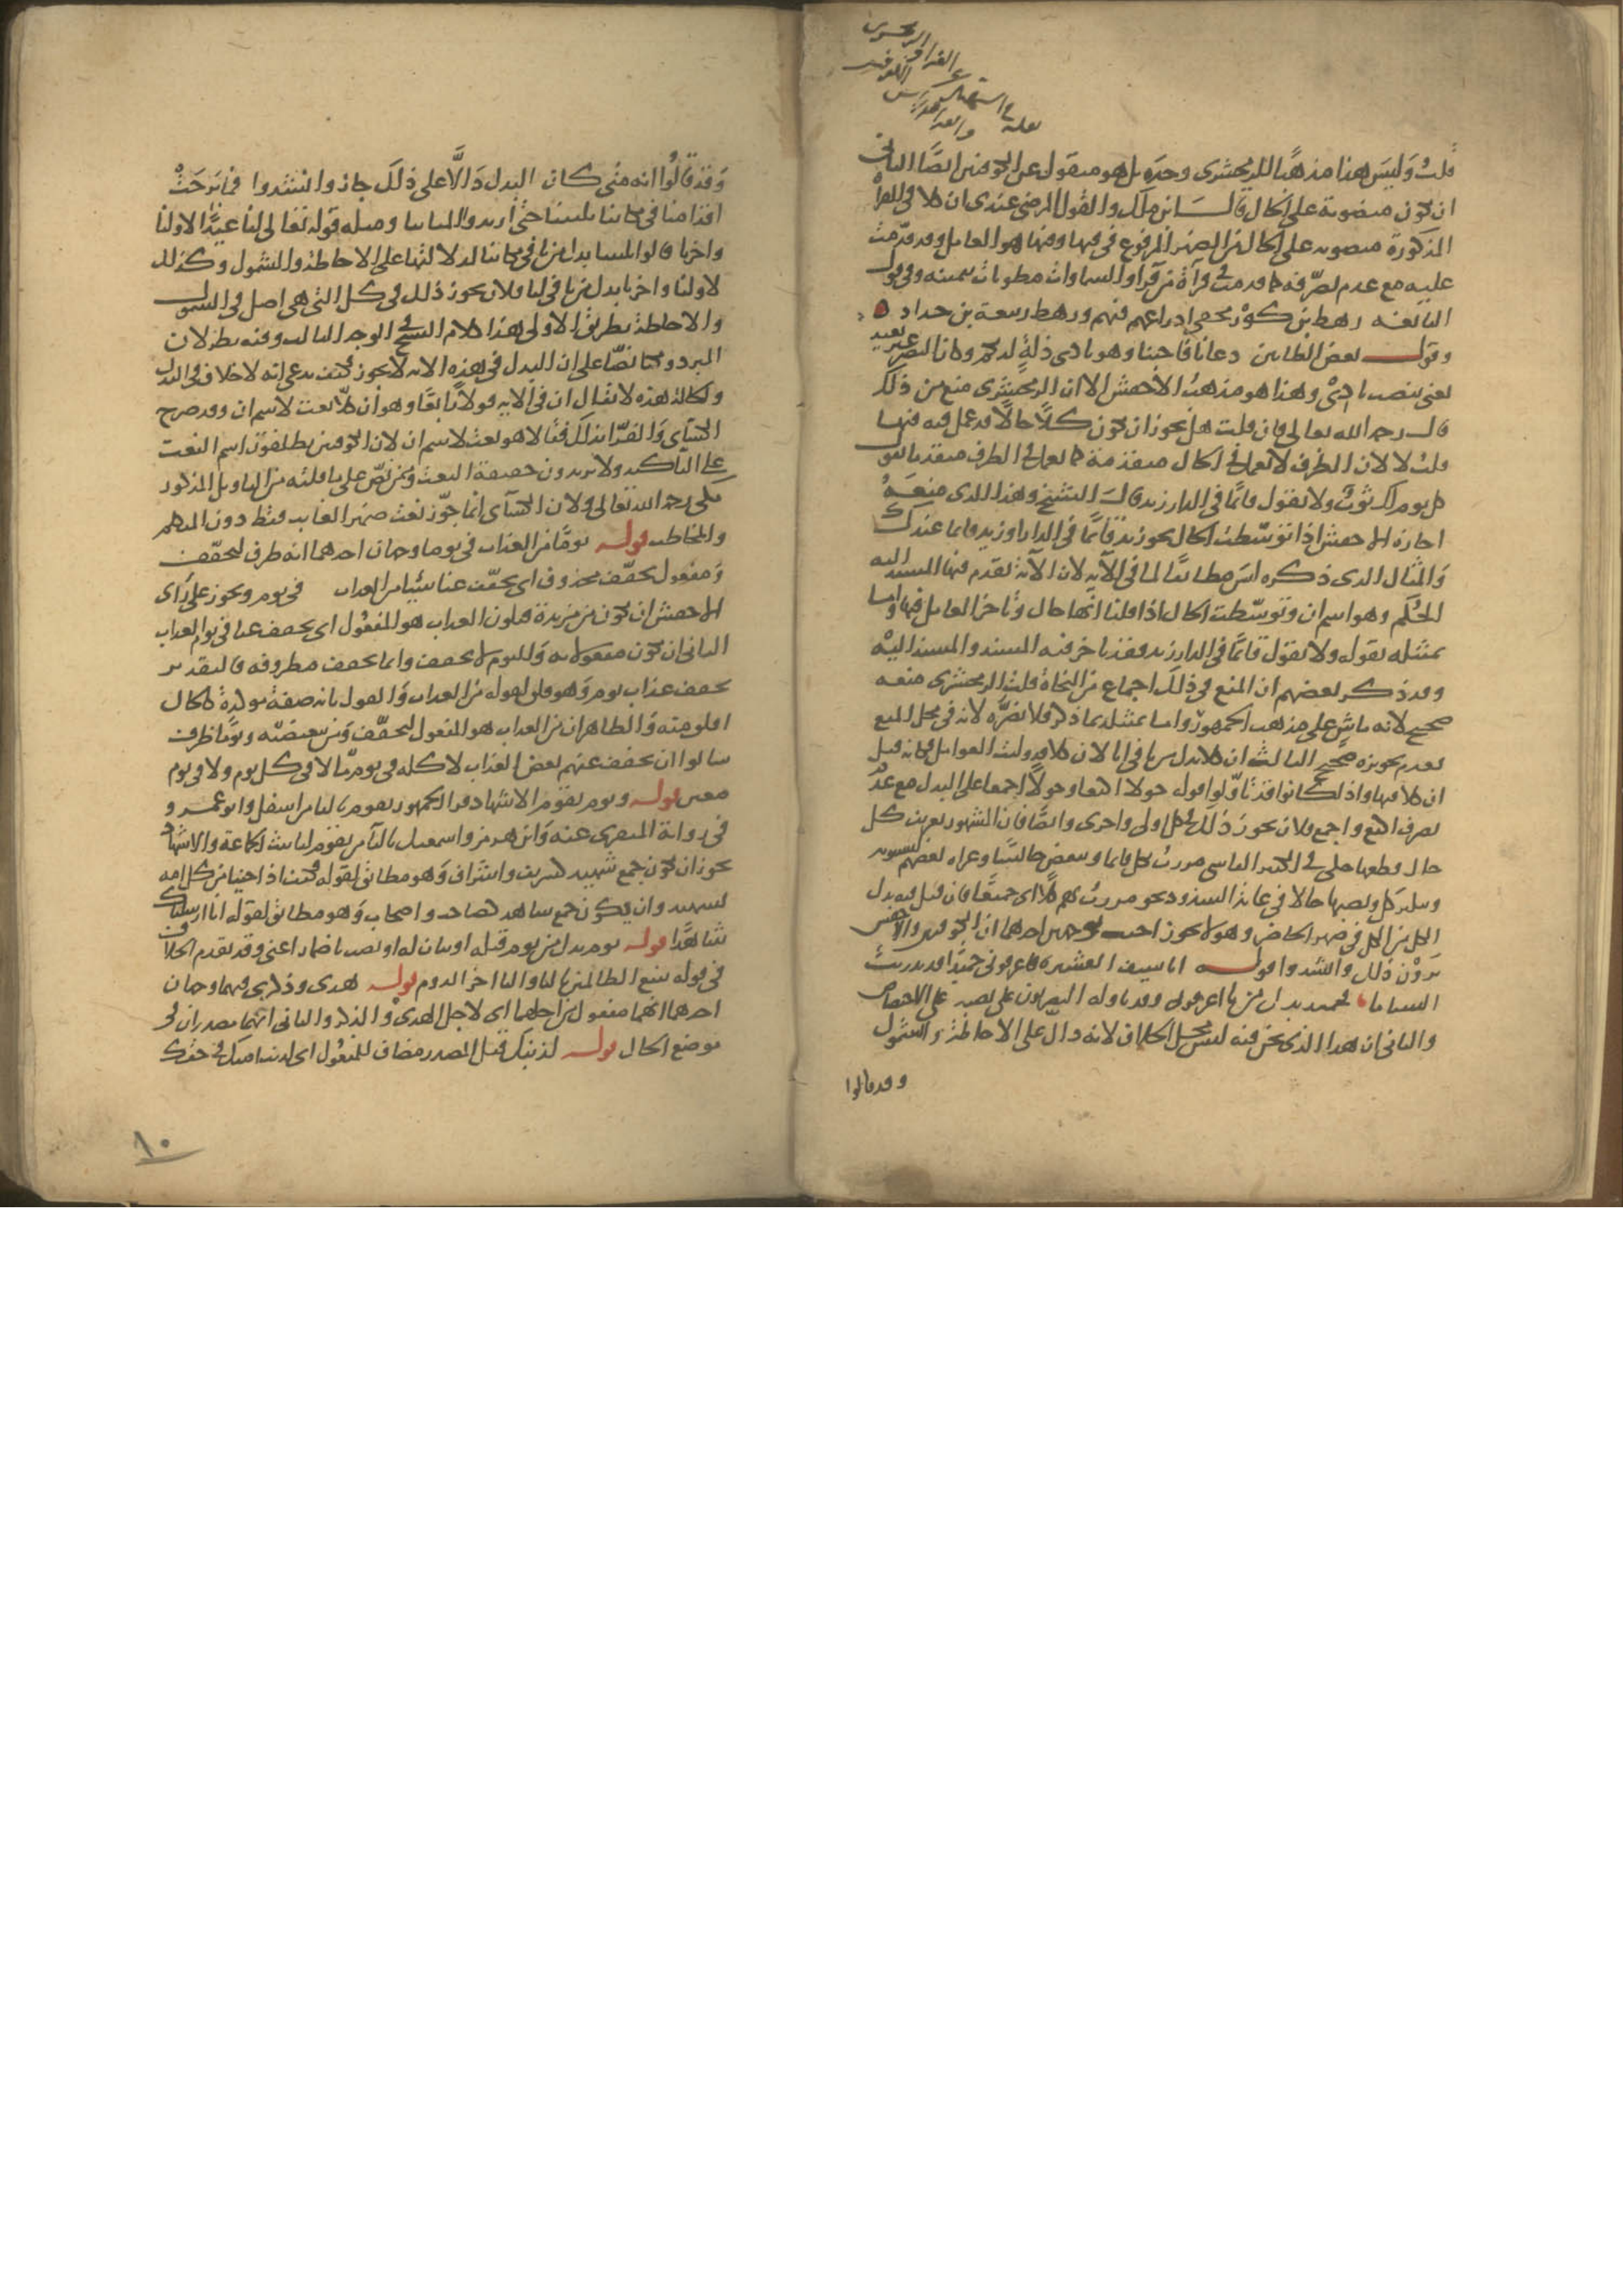 قلت وليس هذا مذهبا للزمخشرى وحده بل هو منقول عن الكوفيين ايضا الثانى
ان تكون منصوبة على الحال قال ابن ملك والقول المرضى عندى ان كلا فى القراة
المذكورة منصوب على الحال من الضمير المرفوع فى فيها وفيها هو العامل وقد قدمت
عليه مع عدم تصرفه كما قدمت فى قرآة من قرا والسماوات مطويات بيمينه وفى قول
النابغه رهط بن كوز محقبى ادراعهم فيهم ورهط ربيعة بن حذار
وقول بعض الطائيين دعانا فاجبنا وهو بادى ذلة لديكم وكان النصر غير بعيد
يعنى بنصب بادى وهذا هو مذهب الاخفش الا ان الزمخشرى منع من ذلك
قال رحمه الله تعالى فان قلت هل يجوز ان تكون كلا حالا قد عمل فيه فيها
قلت لا لان الظرف لا يعمل فى الحال متقدمة كما يعمل فى الظرف متقدما تقول
كل يوم لك ثوب ولا تقول قائما فى الدار زيد قال الشيخ وهذا الذى منعه
اجازه الاخفش اذا توسطت الحال نحو زيد قائما فى الدار او زيد قائما عندك
والمثال الذى ذكره ليس مطابقا لما فى الآية لان الآية تقدم فيها المسند اليه
الحكم وهو اسم ان وتوسطت الحال اذا قلنا انها حال وتاخر العامل فيها واما
تمثيله بقوله ولا تقول قائما فى الدار زيد فقد تاخر فيه المسند والمسند اليه
وقد ذكر بعضهم ان المنع فى ذلك اجماع من النحاة قلت الزمخشرى منعه
صحيح لانه ماش على مذهب الجمهور واما تمثيله بما ذكر فلا يضره لانه فى محل المنع
فعدم تجويزه صحيح الثالث ان كلا بدل من نا فى انا لان كلا قد وليت العوامل فكانه قيل
ان كلا فيها واذا كانوا قد تاولوا قوله حولا اكتعا وحولا اجمعا على البدل مع عدم
تصرف اكتع واجمع فلان يجوز ذلك فى كل اولى واحرى وايضا فان المشهور تعريف كل
حال قطعها حكى فى الكثير الفاشى مررت بكل قائما وببعض جالسا وعزاه بعضهم لسيبويه
وتنكير كل ونصبها حالا فى غاية الشذوذ نحو مررت بهم كلا اى جميعا فان قيل فيه بدل
الكل من الكل فى ضمير الحاضر وهو لا يجوز اجيب بوجهين احدهما ان الكوفيين والاخفش
يرون ذلك وانشدوا قوله انا سيف العشيرة فاعرفونى حميدا قد تذريت
السناما فحميدا بدل من يا اعرفونى وقد تاوله البصريون على نصبه على الاختصاص
والثانى ان هذا الذى نحن فيه ليس محل الخلاف لانه دال على الاحاطة والشمول
وقد قالوا
وقد قالوا انه متى كان البدل دالا على ذلك جاز وانشدوا فما برحت
اقدامنا فى مكاننا ثلثتنا حتى ازيروا المنائيا ومثله قوله تعالى لنا عيدا لاولنا
واخرنا قالوا ثلثتنا بدل من نا فى مكاننا لدلالتها على الاحاطة والشمول وكذلك
لاولنا واخرنا بدل من نا فى لنا فلان يجوز ذلك فى كل التى هى اصل فى الشمول
والاحاطة بطريق الاولى هذا كلام الشيخ فى الوجه الثالث وفيه نظر لان
المبرد ومكيا نصا على ان البدل فى هذه الايه لا يجوز فكيف يدعى انه لا خلاف فى البدل
والحالة هذه لا يقال ان فى الايه قولا رابعا وهو ان كلا نعت لاسم ان وقد صرح
الكسآى والفرا بذلك فقالا هو نعت لاسم ان لان الكوفيين يطلقون اسم النعت
على التاكيد ولا يريدون حقيقة النعت وممن نص على ما قلته من التاويل المذكور
مكى رحمه الله تعالى ولان الكسآى انما جوز نعت ضمير الغايب فقط دون المتكلم
والمخاطب قوله يوما من العذاب فى يوما وجهان احدهما انه ظرف ليخفف
ومفعول يخفف محذوف اى يخفف عنا شيئا من العذاب فى يوم ويجوز على رآى
الاخفش ان تكون من مزيدة فيكون العذاب هو المفعول اى يخفف عنا فى يوم العذاب
الثانى ان تكون مفعولا به واليوم لا يخفف وانما يخفف مظروفه فالتقدير
يخفف عذاب يوم وهو قلق لقوله من العذاب والقول بانه صفة مؤكدة كالحال
اقلق منه والظاهر ان من العذاب هو المفعول ليخفف ومن تبعيضيه ويوما ظرف
سالوا ان يخفف عنهم بعض العذاب لا كله فى يوم ما لا فى كل يوم ولا فى يوم
معين قوله ويوم يقوم الاشهاد قرا الجمهور يقوم باليا من اسفل وابو عمرو
فى رواية المنقرى عنه وابن هرمز واسمعيل بالتآ من تقوم لتانيث الجماعة والاشهاد
يجوز ان تكون جمع شهيد كشريف واشراف وهو مطابق لقوله فكيف اذا جئنا من كل امه
بشهيد وان يكون جمع شاهد كصاحب واصحاب وهو مطابق لقوله انا ارسلناك
شاهدا قوله يوم بدل من يوم قبله او بيان له او نصب باضمار اعنى وقد تقدم الخلاف
فى قوله ينفع الظالمين باليا والتا اخر الروم قوله هدى وذكرى فيهما وجهان
احدهما انهما مفعول من اجلهما اى لاجل الهدى والذكر والثانى انهما مصدران فى
موضع الحال قوله لذنبك قيل المصدر مضاف للمفعول اى لذنب امتك فى حقك
١٠